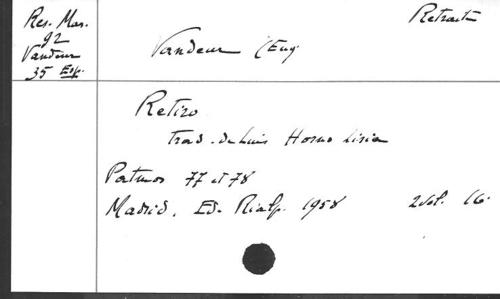 Res. Mar.
92
Vandeur
35 Esp.
Retraite
Vandeur (Eug
Retiro
Trad. de Luis Horno Liria
Patmos 77 et 78
Madrid, Ed. Rialp. 1958 2 vol. 16.